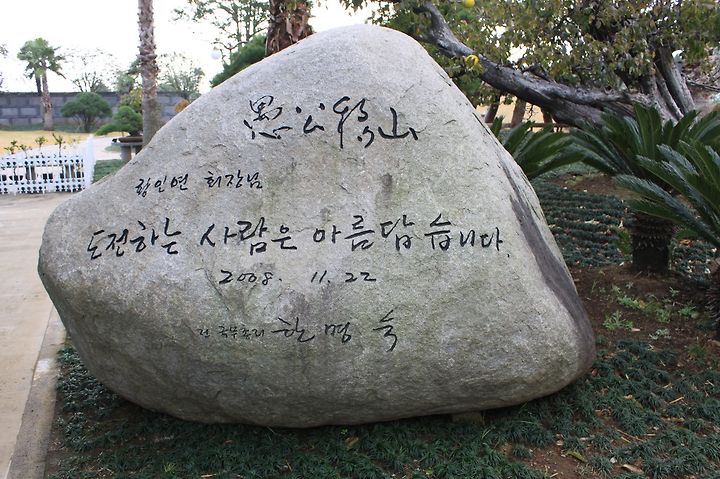 愚公移山
황인연 회장님
도전하는 사람은 아름답습니다.
2008. 11. 22
전 국무총리 한명숙